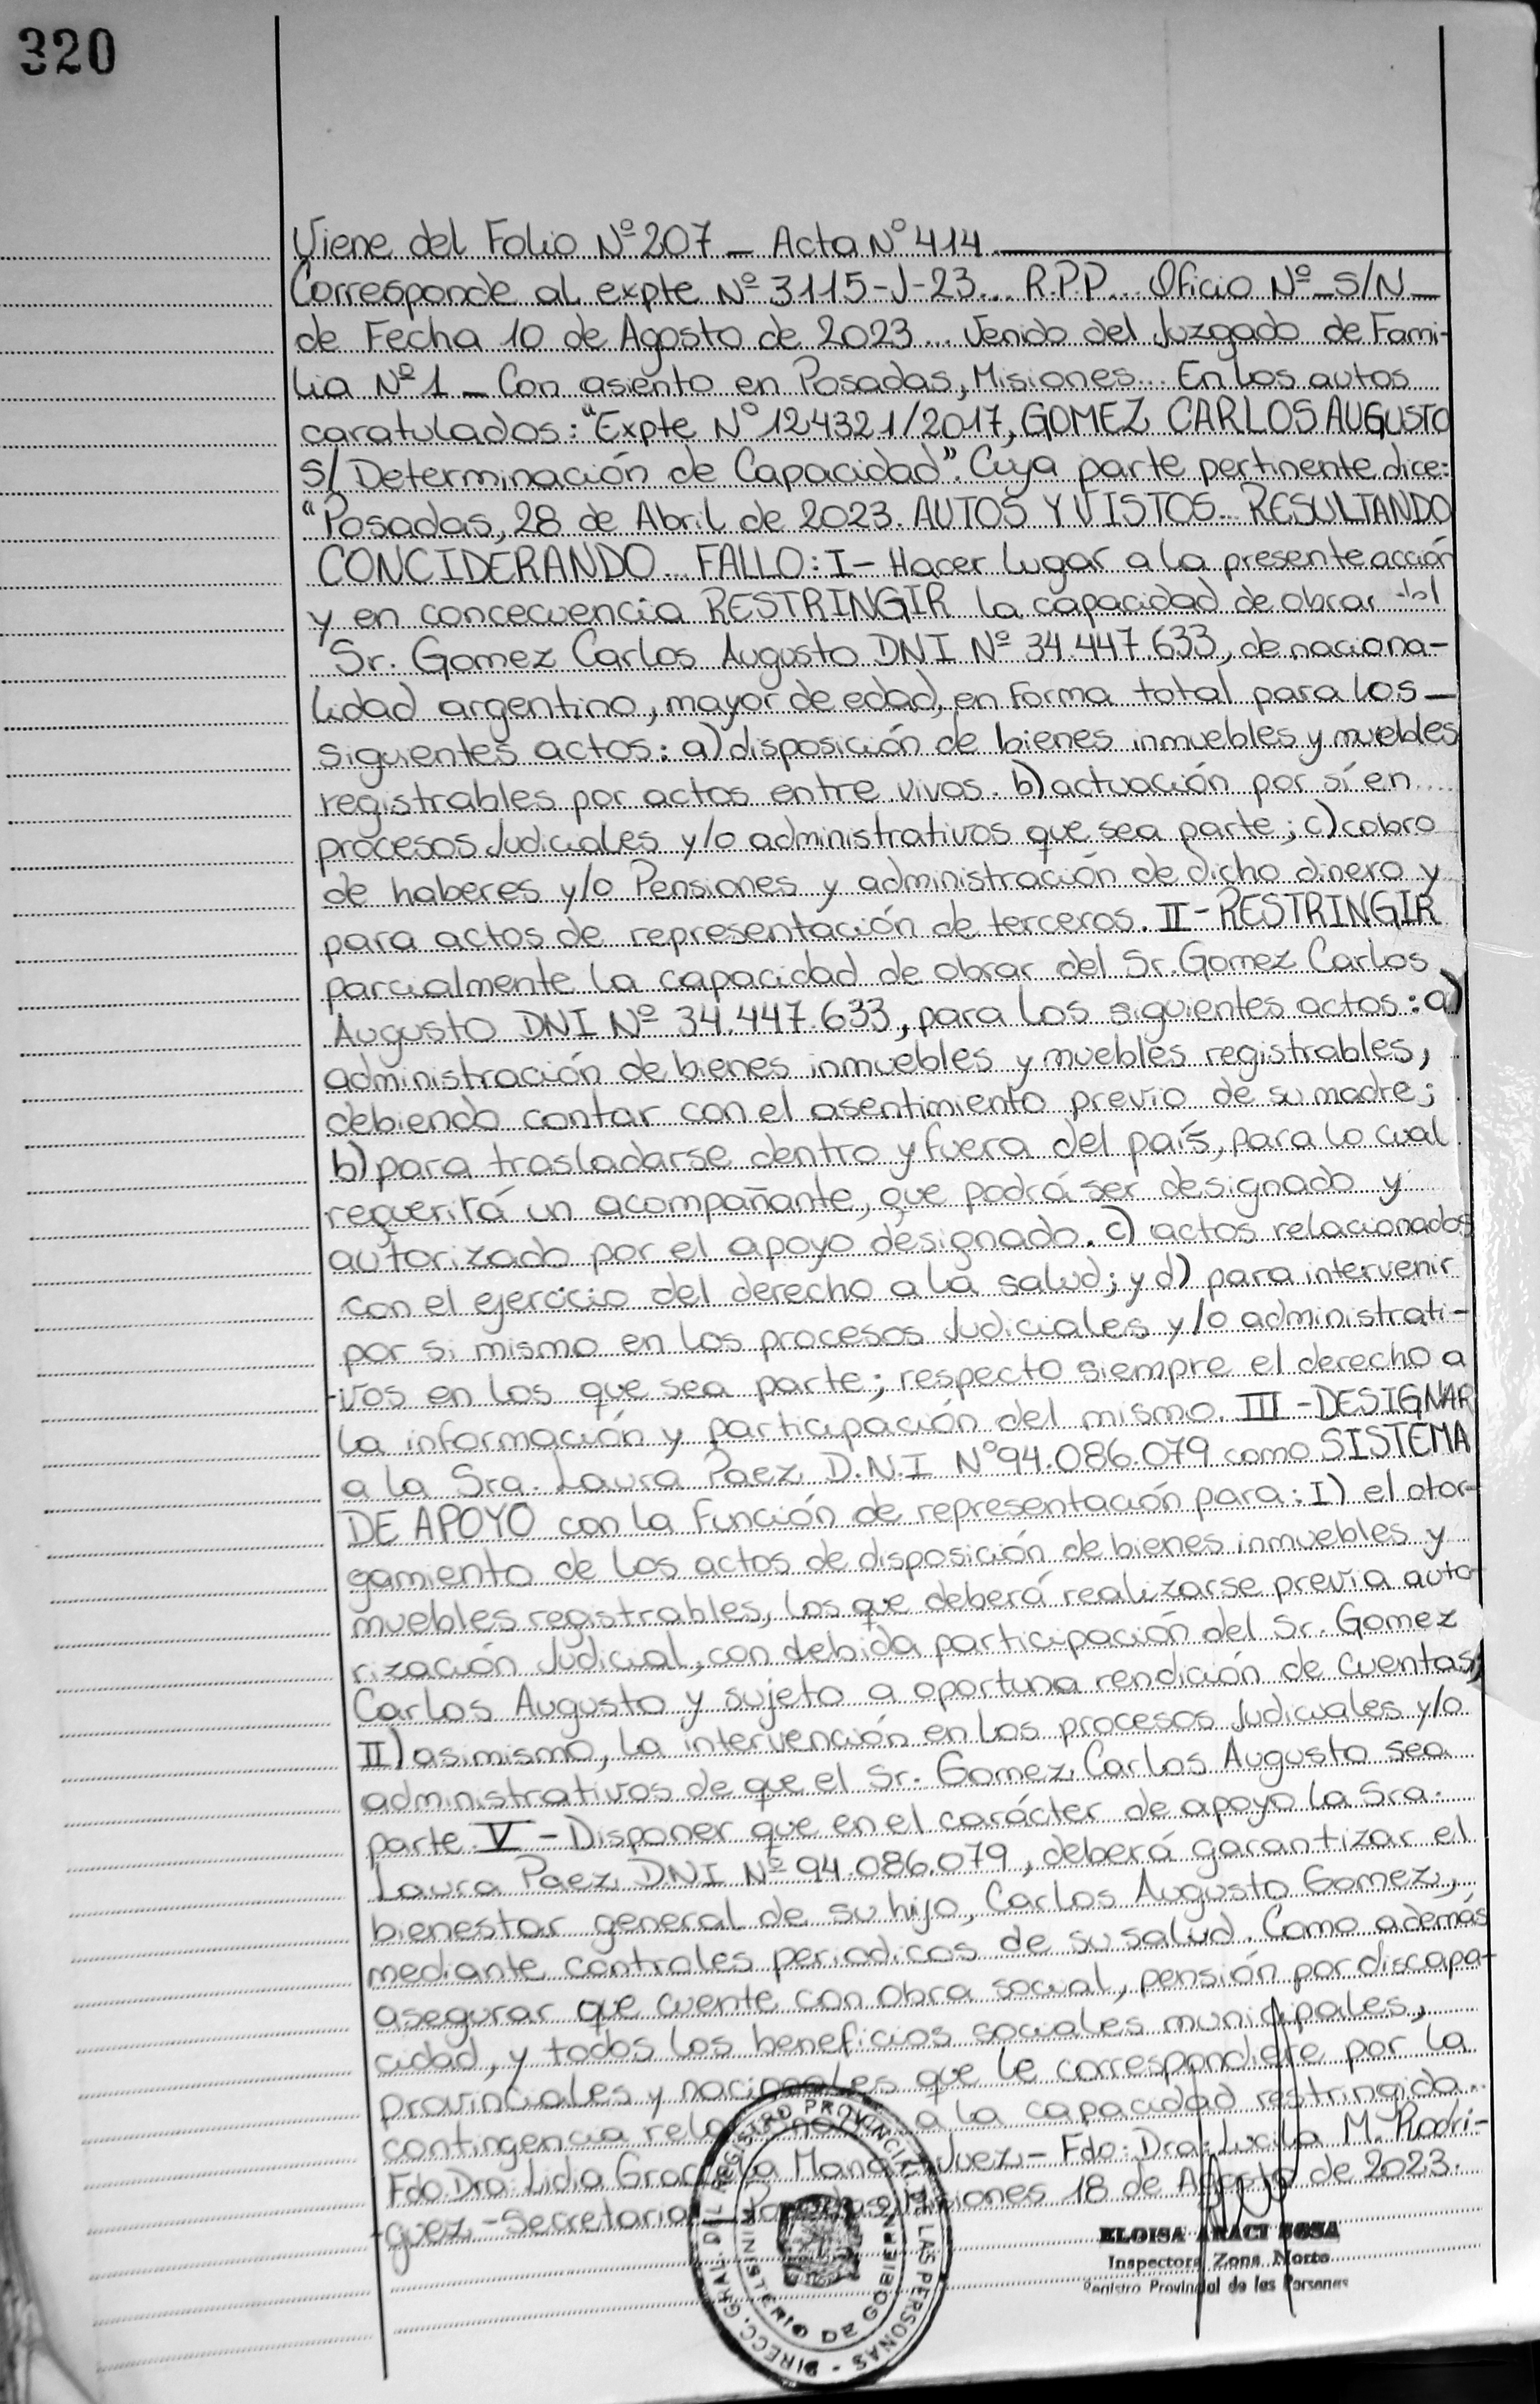 320
Viene del Folio Nº 207 _ Acta Nº 414
Corresponde al expte Nº 3115-J-23... R.P.P... Oficio Nº _S/N_
de Fecha 10 de Agosto de 2023... Venido del Juzgado de Fami-
lia Nº 1 _ Con asiento en Posadas, Misiones... En los autos
caratulados: "Expte Nº 124321/2017, GOMEZ CARLOS AUGUSTO
S/ Determinación de Capacidad". Cuya parte pertinente dice:
"Posadas, 28 de Abril de 2023. AUTOS Y VISTOS... RESULTANDO
CONCIDERANDO... FALLO: I- Hacer lugar a la presente acción
y en concecuencia RESTRINGIR la capacidad de obrar del
Sr. Gomez Carlos Augusto DNI Nº 34.447.633, de naciona-
lidad argentino, mayor de edad, en forma total para los _
siguientes actos: a) disposición de bienes inmuebles y muebles
registrables por actos entre vivos. b) actuación por sí en
procesos Judiciales y/o administrativos que sea parte; c) cobro
de haberes y/o Pensiones y administración de dicho dinero y
para actos de representación de terceros. II - RESTRINGIR
parcialmente la capacidad de obrar del Sr. Gomez Carlos
Augusto DNI Nº 34.447.633, para los siguientes actos: a)
administración de bienes inmuebles y muebles registrables,
debiendo contar con el asentimiento previo de su madre;
b) para trasladarse dentro y fuera del país, para lo cual
requerirá un acompañante, que podrá ser designado y
autorizado por el apoyo designado. c) actos relacionados
con el ejercicio del derecho a la salud; y d) para intervenir
por si mismo en los procesos Judiciales y/o administrati-
-vos en los que sea parte; respecto siempre el derecho a
la información y participación del mismo. III - DESIGNAR
a la Sra. Laura Paez D.N.I Nº 94.086.079 como SISTEMA
DE APOYO con la Función de representación para: I) el otor-
gamiento de los actos de disposición de bienes inmuebles y
muebles registrables, los que deberá realizarse previa auto-
rización Judicial, con debida participación del Sr. Gomez
Carlos Augusto y sujeto a oportuna rendición de cuentas;
II) asimismo, la intervención en los procesos Judiciales y/o
administrativos de que el Sr. Gomez Carlos Augusto sea
parte. V - Disponer que en el carácter de apoyo la Sra.
Laura Paez DNI Nº 94.086.079, deberá garantizar el
bienestar general de su hijo, Carlos Augusto Gomez,
mediante controles periodicos de su salud. Como además
asegurar que cuente con obra social, pensión por discapa-
cidad, y todos los beneficios sociales municipales,
provinciales y nacionales que le correspondiere por la
contingencia a la capacidad restringida..
Fdo. Dra: Lida Graciela Juez - Fdo: Dra: Lucila M. Rodri-
-guez - Secretaria _ Posadas, Misiones 18 de Agosto de 2023.
DIRECC. GRAL. DEL REGISTRO PROVINCIAL DE LAS PERSONAS -
MINISTERIO DE GOBIERNO
ELOISA ARACI SOSA
Inspectora Zona Norte
Registro Provincial de las Personas